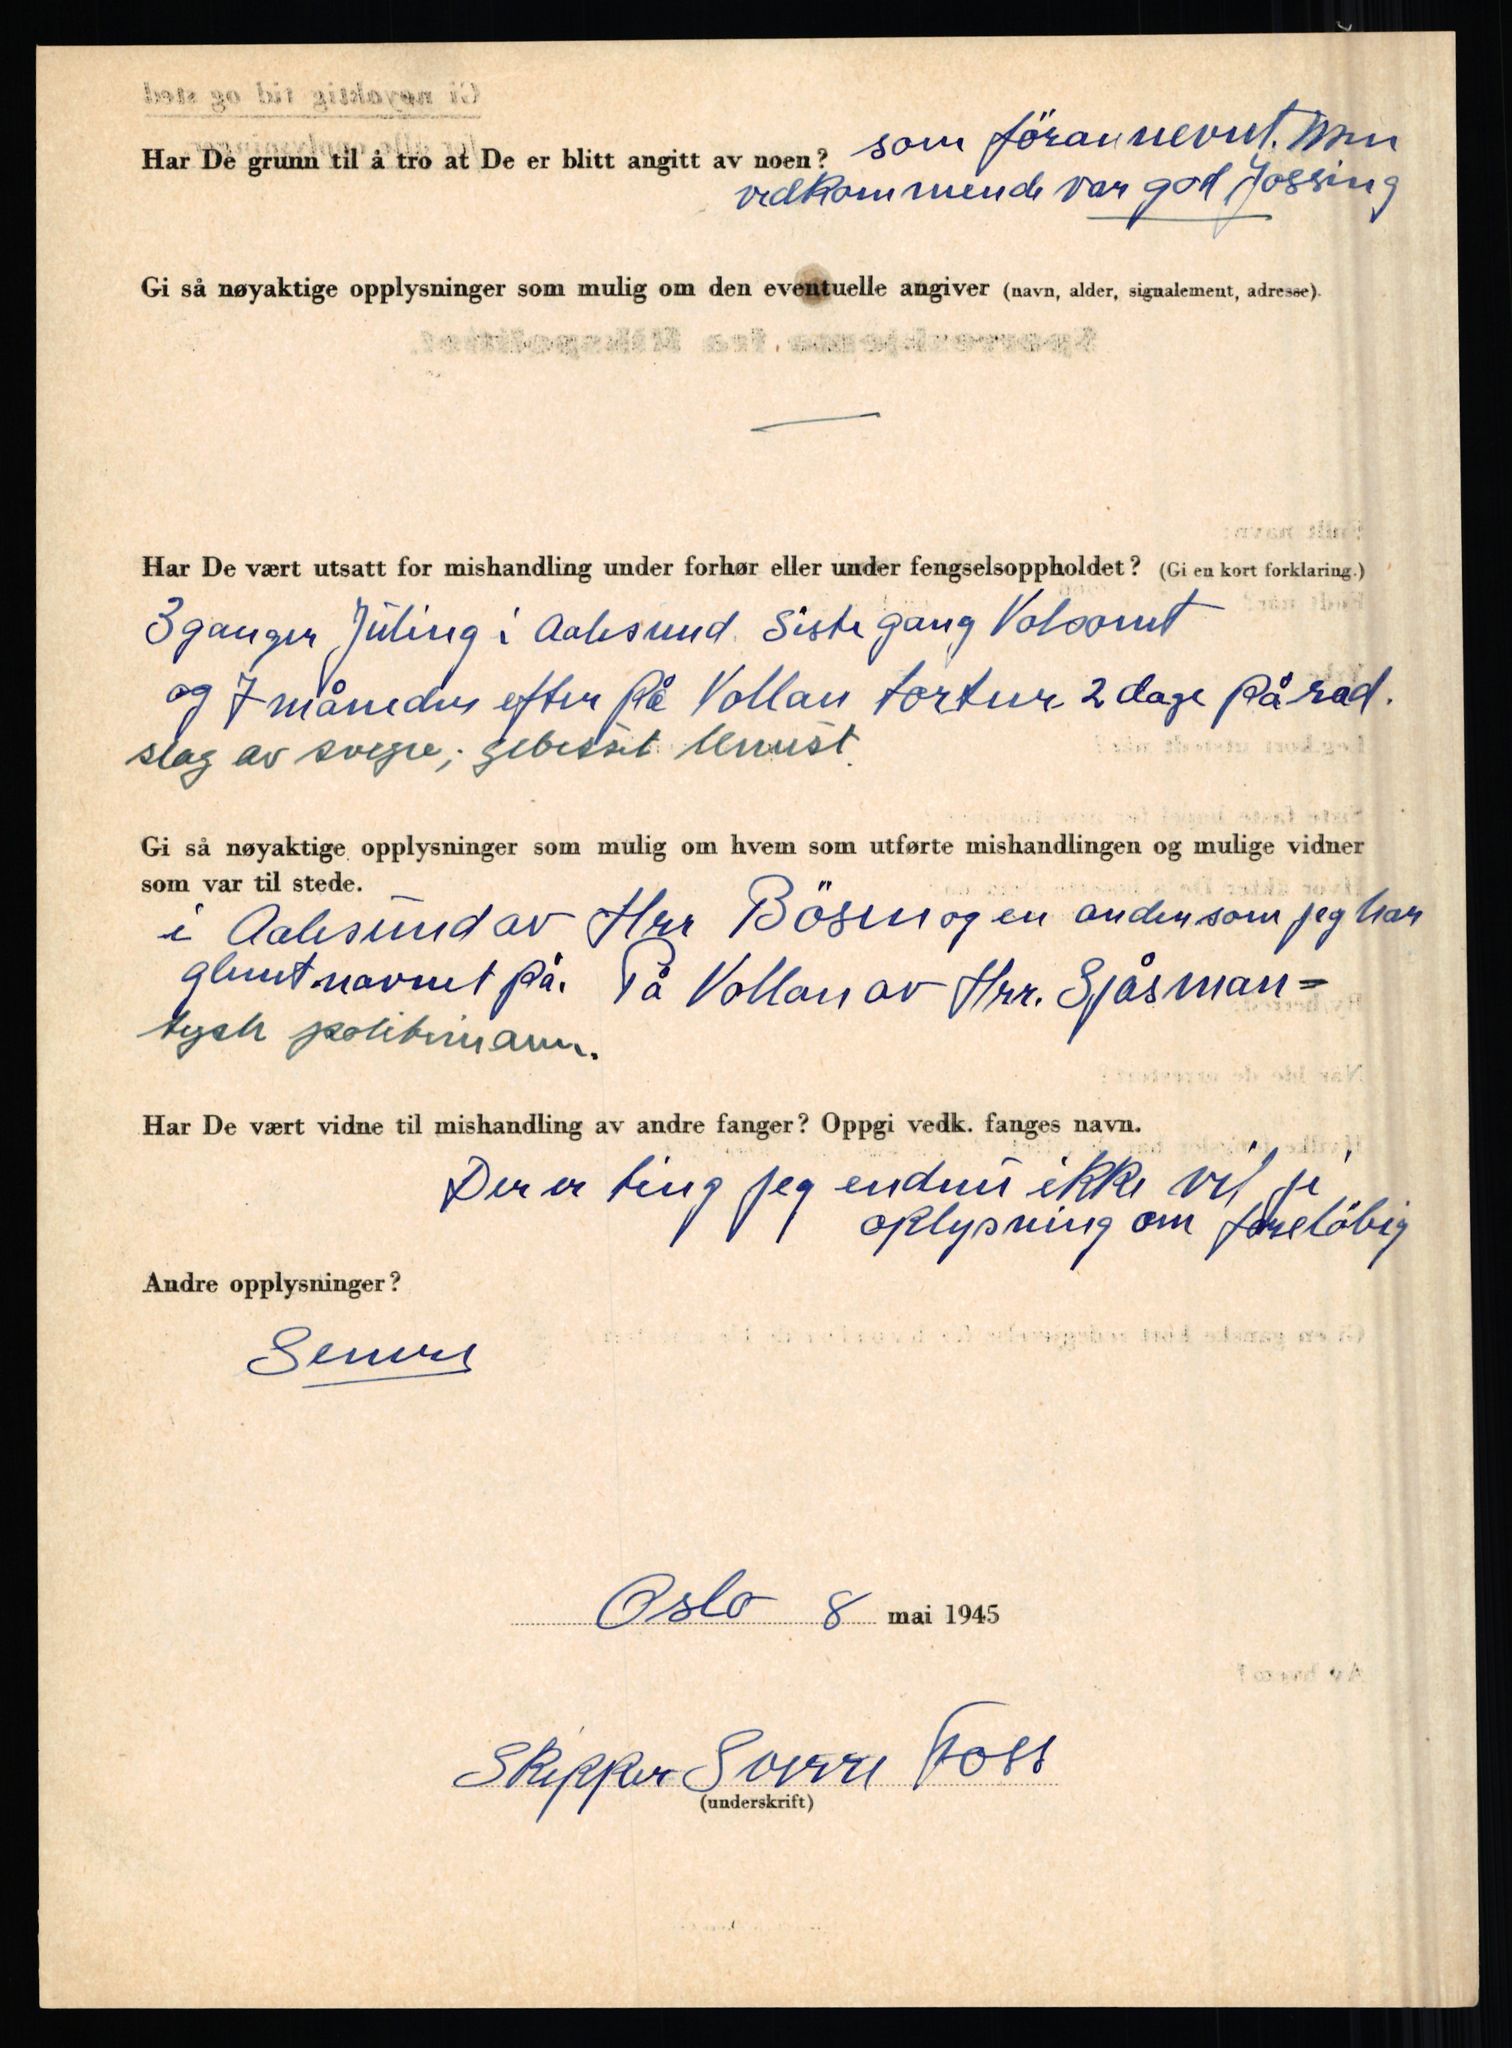 Gi nøyaktig tid og sted
Har De grunn til å tro at De er blitt angitt av noen? som föran nevnt. Men
vedkommende var god Jossing
Gi så nøyaktige opplysninger som mulig om den eventuelle angiver (navn, alder, signalement, adresse).
Har De vært utsatt for mishandling under forhør eller under fengselsoppholdet? (Gi en kort forklaring.)
3 ganger Jüling i Aalesund. Siste gang Volsomt
og 7 måneder efter på Vollan tortur 2 dage på rad.
slag av svepe; gebisset knust.
Gi så nøyaktige opplysninger som mulig om hvem som utførte mishandlingen og mulige vidner
som var til stede.
i Aalesund av Hrr Bösm og en anden som jeg har
glemt navnet på. På Vollan av Hrr. Sjåsman=
tysk politimann.
Har De vært vidne til mishandling av andre fanger? Oppgi vedk. fanges navn.
Der er ting jeg endnu ikke vil gi
oplysning om foreløbig
Andre opplysninger?
Senere
Oslo 8 mai 1945
Skipper Sverre Foss
(underskrift)